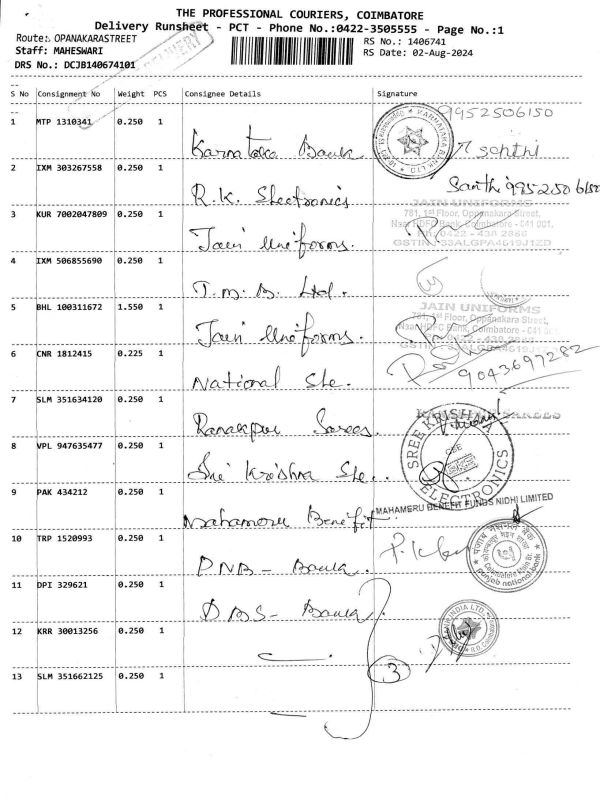 THE PROFESSIONAL COURIERS, COIMBATORE
Delivery Runsheet - PCT - Phone No.:0422-3505555 - Page No.:1
Route: OPANAKARASTREET
RS No.: 1406741
Staff: MAHESWARI
RS Date: 02-Aug-2024
DRS No.: DCJB140674101
DELIVERY
S No Consignment No Weight PCS Consignee Details Signature
1 MTP 1310341 0.250 1 Karnataka Bank 9952506150
2 IXM 303267558 0.250 1 R.K. Electronics Santhi 9952506150
3 KUR 7002047809 0.250 1 Jain Uniforms.
JAIN UNIFORMS
781, 1st Floor, Oppanakara Street,
Near HDFC Bank, Coimbatore - 641 001.
4 IXM 506855690 0.250 1 T.M.B. Ltd.
5 BHL 100311672 1.550 1 Jain Uniforms.
JAIN UNIFORMS
781, 1st Floor, Oppanakara Street,
Near HDFC Bank, Coimbatore - 641 001.
6 CNR 1812415 0.225 1 National Ste. 9043697282
7 SLM 351634120 0.250 1 Ranakpur Sarees.
8 VPL 947635477 0.250 1 Sri Krishna Ste..
SREE KRISHNA ELECTRONICS
CBE
9 PAK 434212 0.250 1 Mahameru Benefit
MAHAMERU BENEFIT FUNDS NIDHI LIMITED
10 TRP 1520993 0.250 1 PNB - Bank.
punjab national bank
11 DPI 329621 0.250 1 DBS - Bank.
12 KRR 30013256 0.250 1
13 SLM 351662125 0.250 1 3